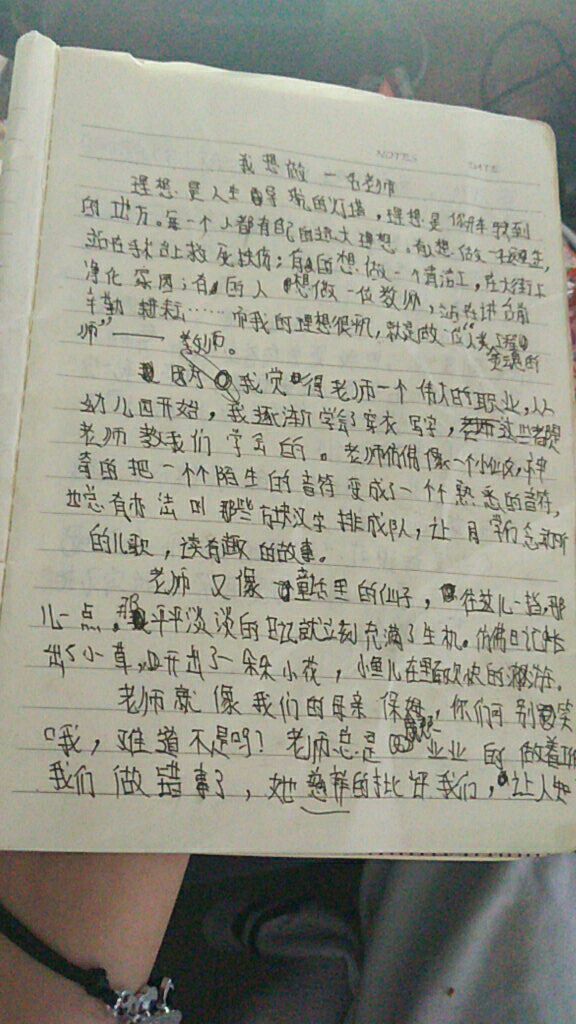 NOTES DATE
我想做一名老师
理想是人生导航的灯塔，理想是你
的地方。每一个人都有自己的远大理想。有人想做一
站在手术台上救死扶伤；有的想做一个清洁工，在大街上
净化家园；有的人想做一位教师，站在讲台前
辛勤耕耘……而我的理想很 就是做一位"人类
灵魂的
师"——教师。
因为我觉得老师一个伟大的职业，从
幼儿园开始，我逐渐学会了穿衣写字，这些都是
老师教我们学会的。老师仿佛像一个小仙女，神
奇的把一个个陌生的音符变成了一个个熟悉的音符，
也总有办法叫那些方块汉字排成队，让同学们
的儿歌，读有趣的故事。
老师又像童话里的仙子，往这儿一指，那
儿一点，那平平淡淡的日记就立刻充满了生机。仿佛日记
出了小草，开出了一朵朵小花，小鱼儿在里面欢快的
老师就像我们的母亲保姆，你们可别笑
我，难道不是吗？老师总是 业业的做着工作
我们做错事了，她慈祥的批评我们，让人